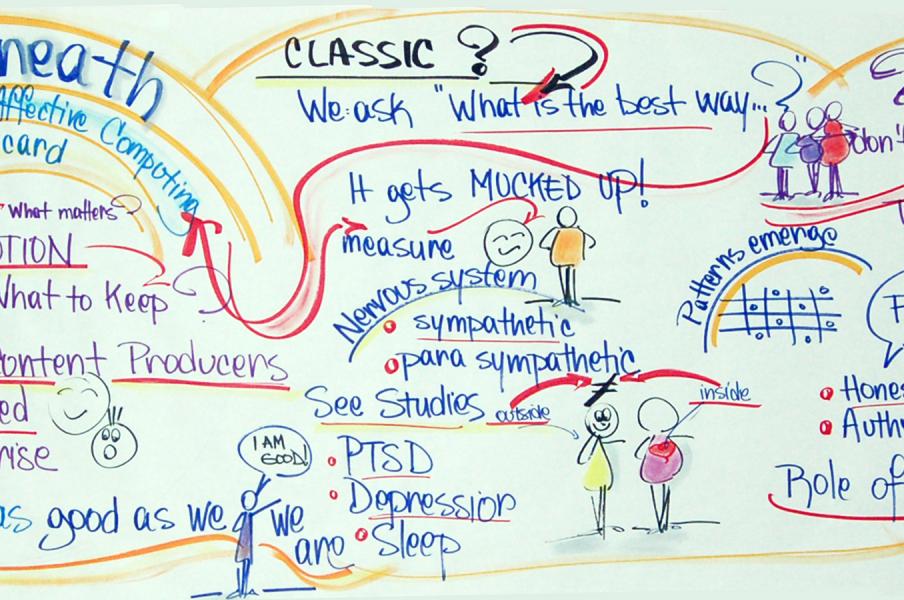 neath
Affective Computing
card
What matters?
OTION
What to Keep
ontent Producers
ed
rise
as good as we
I AM
GOOD!
we
are
CLASSIC ?
We ask "What is the best way... ?"
It gets MUCKED UP!
measure
Nervous system
sympathetic
para sympathetic
See Studies
PTSD
Depression
Sleep
outside
≠
inside
don't
Patterns emerge
Hones
Auth
Role of